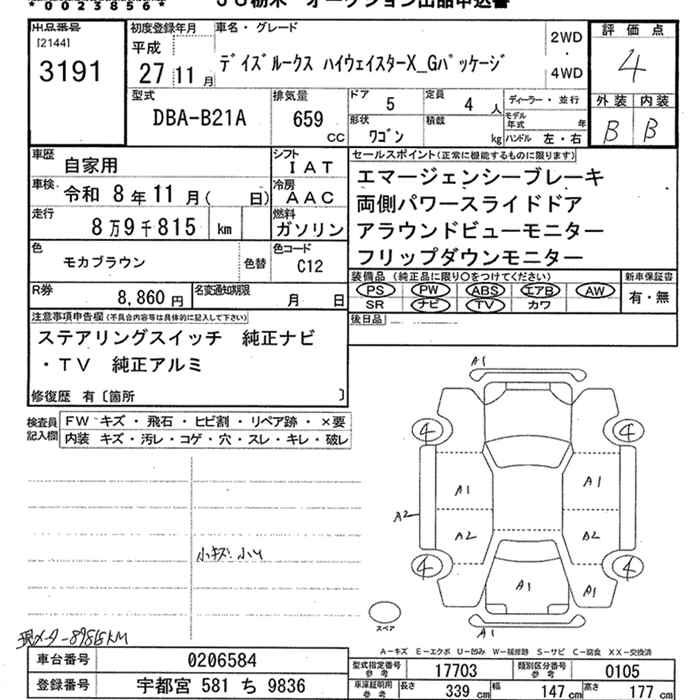 *0023856*
JU栃木 オークション出品申込書
出品番号
[2144]
3191
初度登録年月
平成
27 11 月
車名・グレード
デイズルークス ハイウェイスターX_Gパッケージ
2WD
・
4WD
評価点
4
外装 内装
B B
型式
DBA-B21A
排気量
659
cc
ドア
5
定員
4 人
形状
ワゴン
積載
kg
ディーラー・並行
モデル
年式
年
ハンドル 左・右
車歴
自家用
シフト
IAT
車検
令和 8年11月( 日)
冷房
AAC
走行
8万9千815 km
燃料
ガソリン
色
モカブラウン
色替
色コード
C12
R券
8,860円
名変通知期限
月 日
セールスポイント(正常に機能するものに限ります)
エマージェンシーブレーキ
両側パワースライドドア
アラウンドビューモニター
フリップダウンモニター
装備品 (純正品に限り○をつけてください)
PS PW ABS エアB AW
SR ナビ TV カワ
新車保証書
有・無
後日品
注意事項申告欄(不具合内容等は具体的に記入して下さい)
ステアリングスイッチ 純正ナビ
・TV 純正アルミ
修復歴 有〔箇所 〕
検査員
記入欄
FW キズ・飛石・ヒビ割・リペア跡・×要
内装 キズ・汚レ・コゲ・穴・スレ・キレ・破レ
小キズ 小凹
現メーター89815KM
A1
4
4
A1
A1
A2
A2
A2
4
4
A1
A1
A1
スペア
A-キズ E-エクボ U-凹み W-補修跡 S-サビ C-腐食 XX-交換済
車台番号
0206584
登録番号
宇都宮 581 ち 9836
型式指定番号
参考
17703
類別区分番号
参考
0105
車庫証明用
参考
長さ
339 cm
幅
147 cm
高さ
177 cm